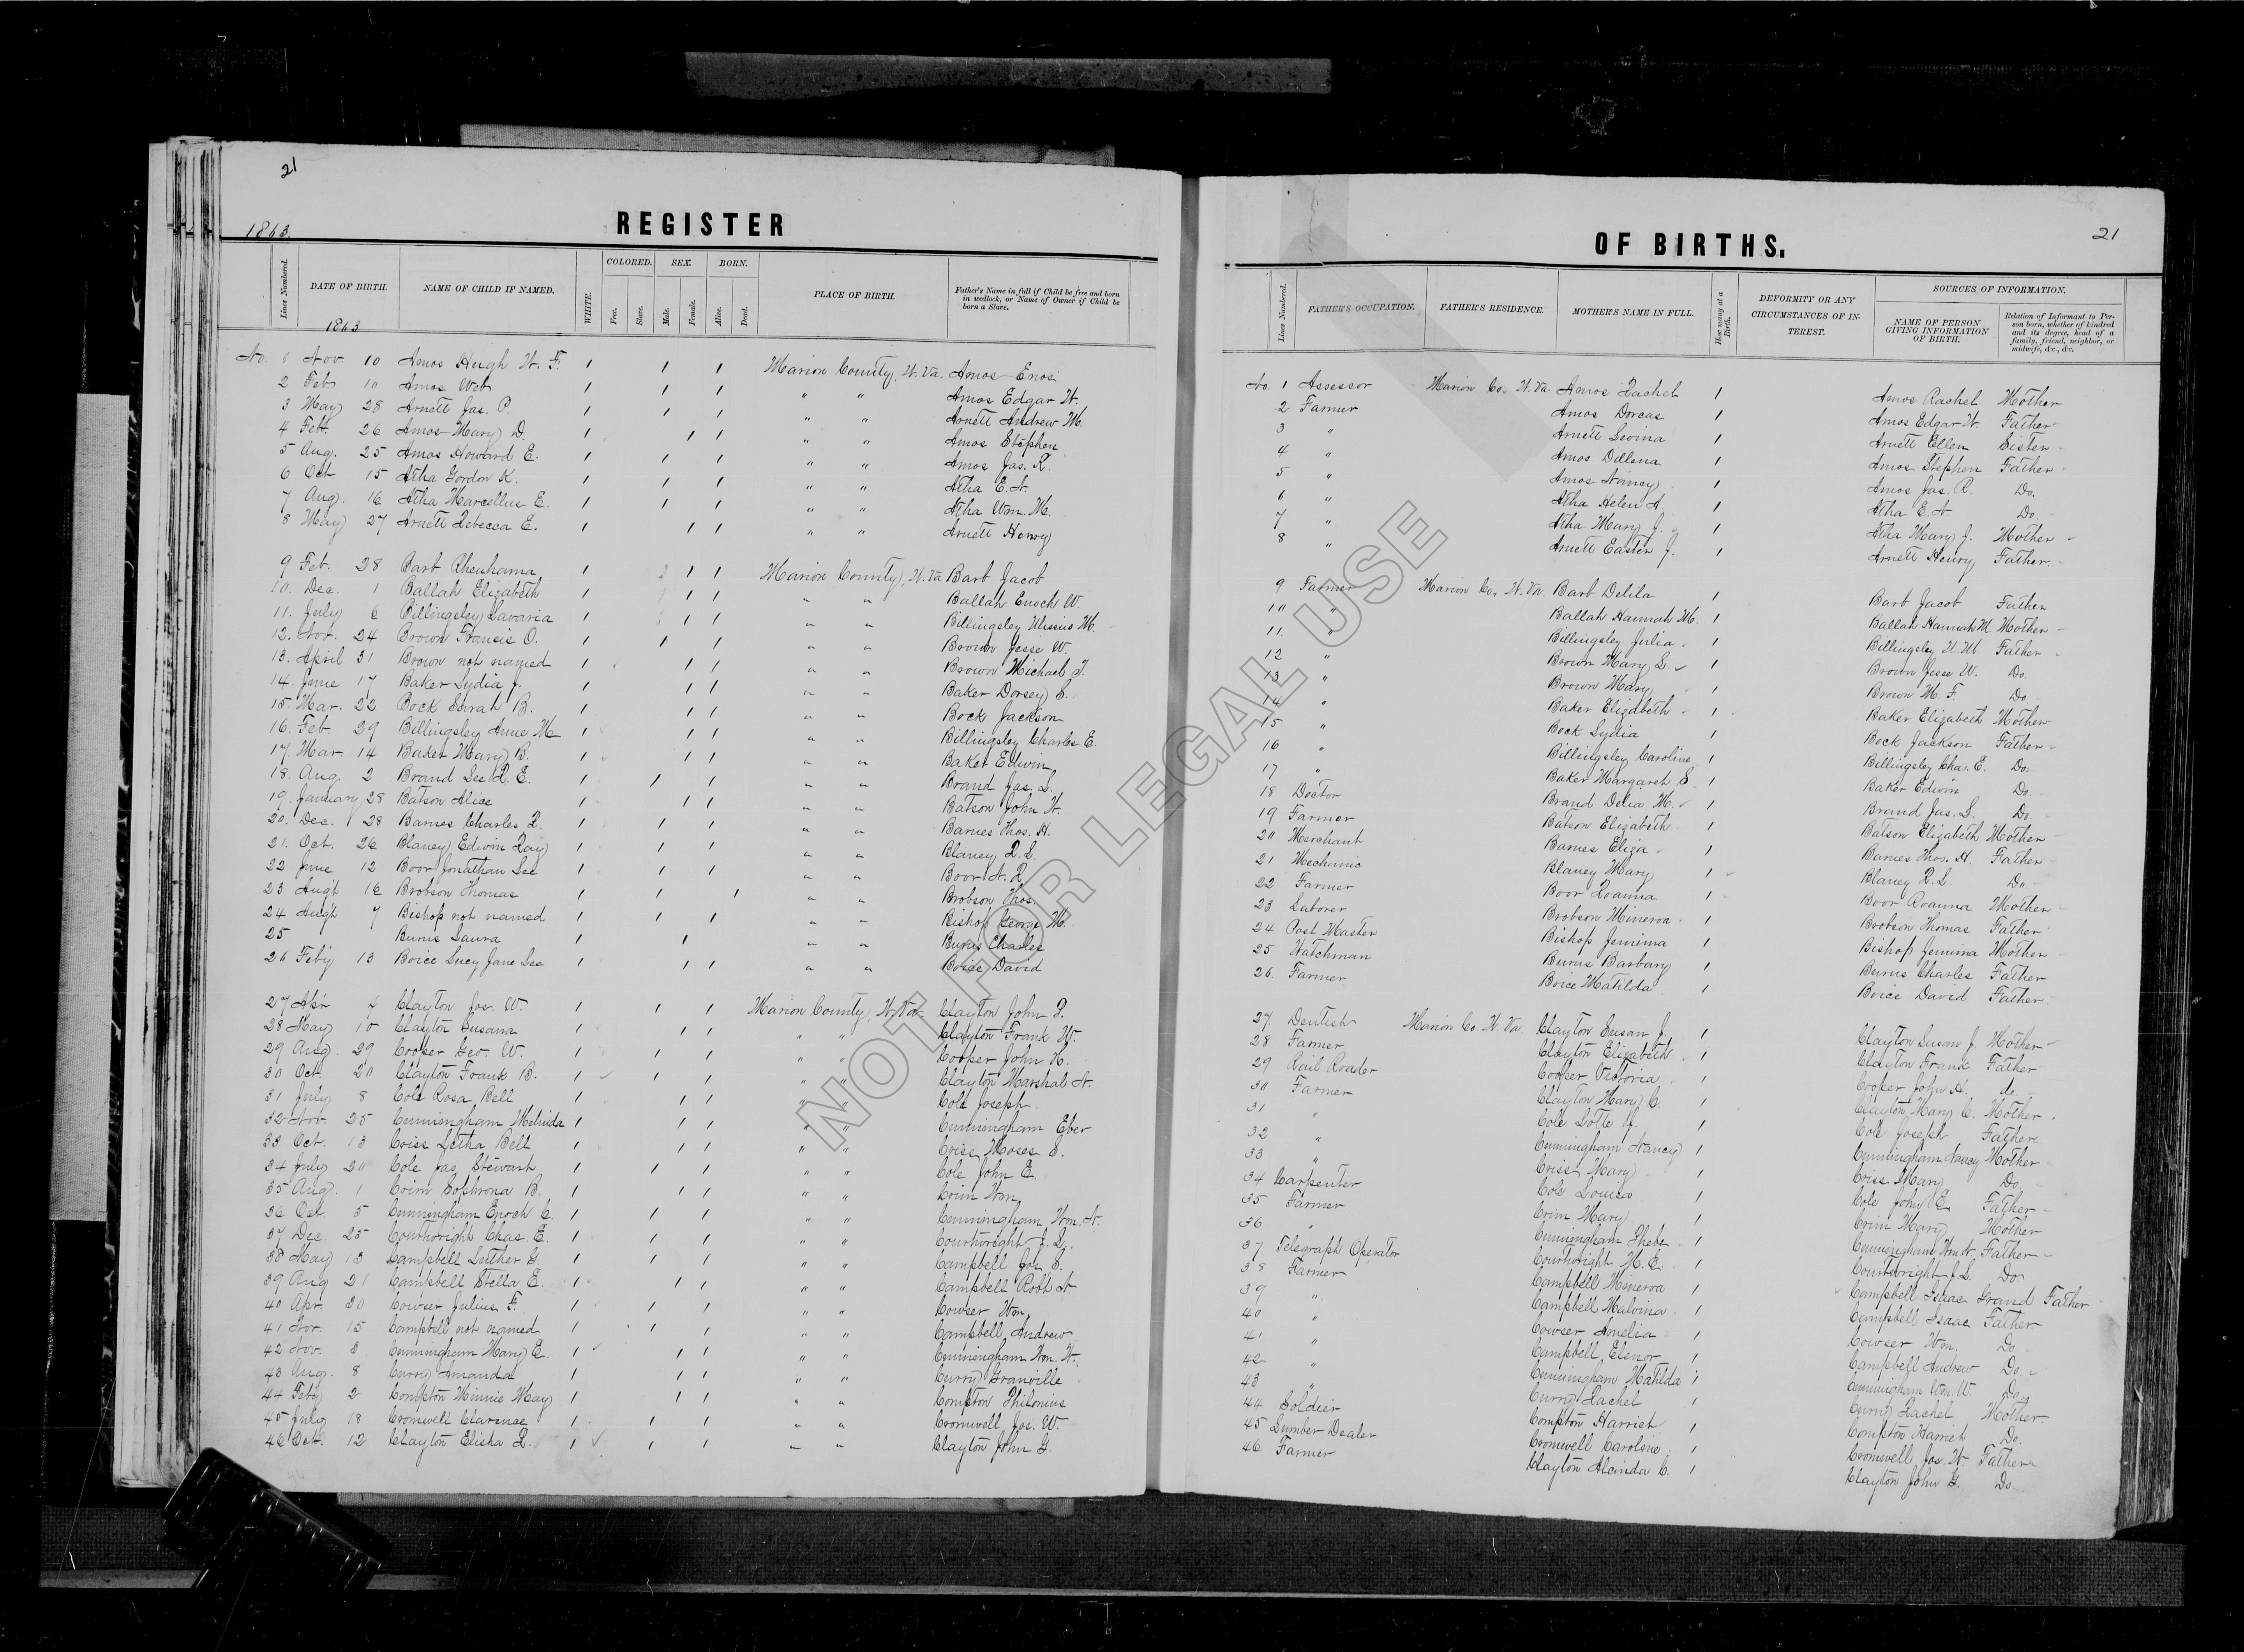 21
1863.
REGISTER
Lines Numbered.
DATE OF BIRTH.
NAME OF CHILD IF NAMED.
WHITE.
COLORED.
Free.
Slave.
SEX.
Male.
Female.
BORN.
Alive.
Dead.
PLACE OF BIRTH.
Father's Name in full if Child be free and born in wedlock, or Name of Owner if Child be born a Slave.
1863
No. 1 Nov. 10 Amos Hugh W. F. 1 1 1 Marion County, W. Va. Amos Enos
2 Feb 10 Amos 1 1 1 " " Amos Edgar W.
3 May 28 Arnett Jas. P. 1 1 1 " " Arnett Andrew M.
4 Feb. 26 Amos Mary D. 1 1 1 " " Amos Stephen
5 Aug. 25 Amos Howard E. 1 1 1 " " Amos Jas. R.
6 Oct 15 Atha Gordon K. 1 1 1 " " Atha E. N.
7 Aug. 16 Atha Marcellus E. 1 1 1 " " Atha Wm. M.
8 May 27 Arnett Rebecca E. 1 1 1 " " Arnett Henry
9 Feb. 28 Barb 1 1 1 Marion County, W. Va Barb Jacob
10. Dec. 1 Ballah Elizabeth 1 1 1 " " Ballah Enoch W.
11. July 6 Billingsley Lavaria 1 1 1 " " Billingsley M.
12. Nov. 24 Brown Francis O. 1 1 1 " " Brown Jesse W.
13. April 31 Brown not named 1 1 1 " " Brown Michael F.
14. June 17 Baker Lydia J. 1 1 1 " " Baker Dorsey S.
15 Mar. 22 Bock Sarah B. 1 1 1 " " Bock Jackson
16. Feb 29 Billingsley Anne M 1 1 1 " " Billingsley Charles E.
17. Mar 14 Baker Mary B. 1 1 1 " " Baker Edwin
18. Aug. 2 Brand Lee R. E. 1 1 1 " " Brand Jas. L.
19. January 28 Batson Alice 1 1 1 " " Batson John W.
20. Dec. 28 Barnes Charles R. 1 1 1 " " Barnes Thos. H.
21. Oct. 26 Blaney Edwin Ray 1 1 1 " " Blaney R. L.
22 June 12 Boor Jonathan Lee 1 1 1 " " Boor N. R
23 Aug't 16 Brobson Thomas 1 1 1 " " Brobson Thos.
24 Aug't 7 Bishop not named 1 1 1 " " Bishop George M.
25 Burns Laura 1 1 " " Burns Charles
26 Feb'y 13 Boice Lucy Jane Lee 1 1 1 " " Boice David
27 Apr 4 Clayton Jos. W. 1 1 1 Marion County, W. Va Clayton John F.
28 May 10 Clayton Susana 1 1 1 " " Clayton Frank W.
29 Aug. 29 Cooper Geo. W. 1 1 1 " " Cooper John H.
30 Oct 20 Clayton Frank B. 1 1 1 " " Clayton Marshal N.
31 July 8 Cole Rosa Bell 1 1 1 " " Cole Joseph
32 Nov. 25 Cunningham Melinda 1 1 1 " " Cunningham Eber
33 Oct. 13 Criss Letha Bell 1 1 1 " " Criss Moses S.
34 July 20 Cole Jas Stewart 1 1 1 " " Cole John E.
35 Aug. 1 Crim Sophrona B. 1 1 1 " " Crim Wm.
36 Oct. 5 Cunningham Enoch C. 1 1 1 " " Cunningham Wm. N.
37 Dec. 25 Courtwright Chas. E. 1 1 1 " " Courtwright J. L.
38 May 13 Campbell Luther G. 1 1 1 " " Campbell Jos. S.
39 Aug. 21 Campbell Stella E. 1 1 1 " " Campbell Robt N
40 Apr. 30 Cowser Julius F. 1 1 1 " " Cowser Wm.
41 Nov. 15 Campbell not named 1 1 1 " " Campbell Andrew
42 Nov. 3 Cunningham Mary E. 1 1 1 " " Cunningham Wm. W.
43 Aug. 8 Curry Amanda 1 1 1 " " Curry Granville
44 Feby 2 Compton Minnie May 1 1 1 " " Compton
45 July 18 Cromwell Clarence 1 1 1 " " Cromwell Jos. W.
46 Oct. 12 Clayton Elisha R. 1 1 1 " " Clayton John G.
21
OF BIRTHS.
Lines Numbered.
FATHER'S OCCUPATION.
FATHER'S RESIDENCE.
MOTHER'S NAME IN FULL.
How many at a Birth.
DEFORMITY OR ANY CIRCUMSTANCES OF INTEREST.
SOURCES OF INFORMATION.
NAME OF PERSON GIVING INFORMATION OF BIRTH.
Relation of Informant to Person born, whether of kindred and its degree, head of a family, friend, neighbor, or midwife, &c., &c.
No. 1 Assessor Marion Co. W. Va. Amos Rachel 1 Amos Rachel Mother
2 Farmer Amos Dorcas 1 Amos Edgar W. Father
3 " Arnett Levina 1 Arnett Ellen Sister
4 " Amos Dellena 1 Amos Stephen Father
5 " Amos Nancy 1 Amos Jas. R. Do.
6 " Atha Helen A. 1 Atha E. N. Do.
7 " Atha Mary J. 1 Atha Mary J. Mother
8 " Arnett Easter J. 1 Arnett Henry Father
9 Farmer Marion Co. W. Va. Barb Delila 1 Barb Jacob Father
10 " Ballah Hannah M. 1 Ballah Hannah M Mother
11. " Billingsley Julia 1 Billingsley M Father
12 " Brown Mary L. 1 Brown Jesse W. Do.
13 " Brown Mary 1 Brown M. F. Do
14 " Baker Elizabeth 1 Baker Elizabeth Mother
15 " Bock Lydia 1 Bock Jackson Father
16 " Billingsley Caroline 1 Billingsley Chas. E. Do.
17 " Baker Margaret S. 1 Baker Edwin Do.
18 Doctor Brand Delia M. 1 Brand Jas. L. Do.
19 Farmer Batson Elizabeth 1 Batson Elizabeth Mother
20 Merchant Barnes Eliza 1 Barnes Thos. H. Father
21 Mechanic Blaney Mary 1 Blaney R. L. Do.
22 Farmer Boor Roanna 1 Boor Roanna Mother
23 Laborer Brobson Minerva 1 Brobson Thomas Father
24 Post Master Bishop Jemima 1 Bishop Jemima Mother
25 Watchman Burns Barbary 1 Burns Charles Father
26. Farmer Boice Matilda 1 Boice David Father
27. Dentist Marion Co. W. Va. Clayton Susan J. 1 Clayton Susan J. Mother
28 Farmer Clayton Elizabeth 1 Clayton Frank Father
29 Rail Roader Cooper Victoria 1 Cooper John H. do
30 Farmer Clayton Mary C. 1 Clayton Mary C. Mother
31 " Cole 1 Cole Joseph Father
32 " Cunningham Nancy 1 Cunningham Nancy Mother
33 " Criss Mary 1 Criss Mary Do.
34 Carpenter Cole Louisa 1 Cole John E Father
35 Farmer Crim Mary 1 Crim Mary Mother
36 " Cunningham Phebe 1 Cunningham Wm N. Father
37 Telegraph Operator Courtwright M. E. 1 Courtwright J. L. Do
38 Farmer Campbell Menerva 1 Campbell Isaac Grand Father
39 " Campbell Malvina 1 Campbell Isaac Father
40 " Cowser Amelia 1 Cowser Wm. Do
41 " Campbell Elenor 1 Campbell Andrew Do.
42 " Cunningham Matilda 1 Cunningham Wm. W. Do.
43 " Curry Rachel 1 Curry Rachel Mother
44 Soldier Compton Harriet 1 Compton Harriet Do.
45 Lumber Dealer Cromwell Caroline 1 Cromwell Jos. W Father
46 Farmer Clayton Alcinda C. 1 Clayton John G. Do
NOT FOR LEGAL USE